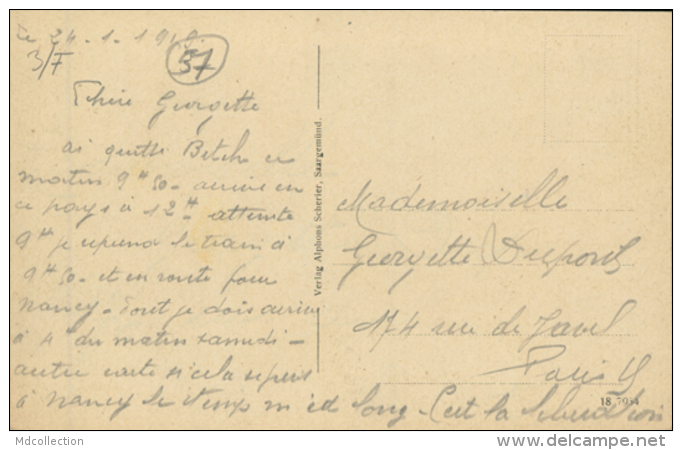 le 24-1-1919.
3/F
57
Chère Georgette
ai quitté Bitche ce
matin 9H50 - arrive en
ce pays à 12H attente
9H je reprend le train à
9H50 - et en route pour
Nancy - dont je dois arriver
à 4H du matin samedi -
autre carte si cela
à Nancy le temps m'est long - C'est la libération
Verlag Alphons Scherier, Saargemünd.
Mademoiselle
Georgette Dupont
174 rue de Javel
Paris
18 7054
Mdcollection
www.delcampe.net